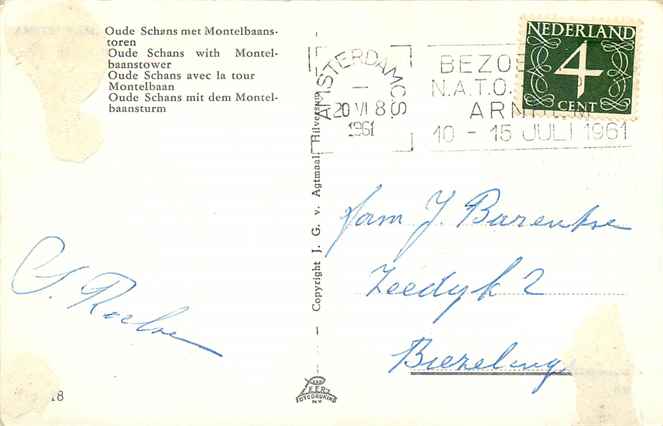 Oude Schans met Montelbaans-
toren
Oude Schans with Montel-
baanstower
Oude Schans avec la tour
Montelbaan
Oude Schans mit dem Montel-
baansturm
AMSTERDAM C.S
20 VI 8
1961
BEZO
N.A.T.O.
ARN
10 - 15 JULI 1961
NEDERLAND
4
CENT
Copyright J. G. v. Agtmaal, Hilversum
Fam J. Barentse
Zeedyk 2
Biezelinge
J. Roelse
18